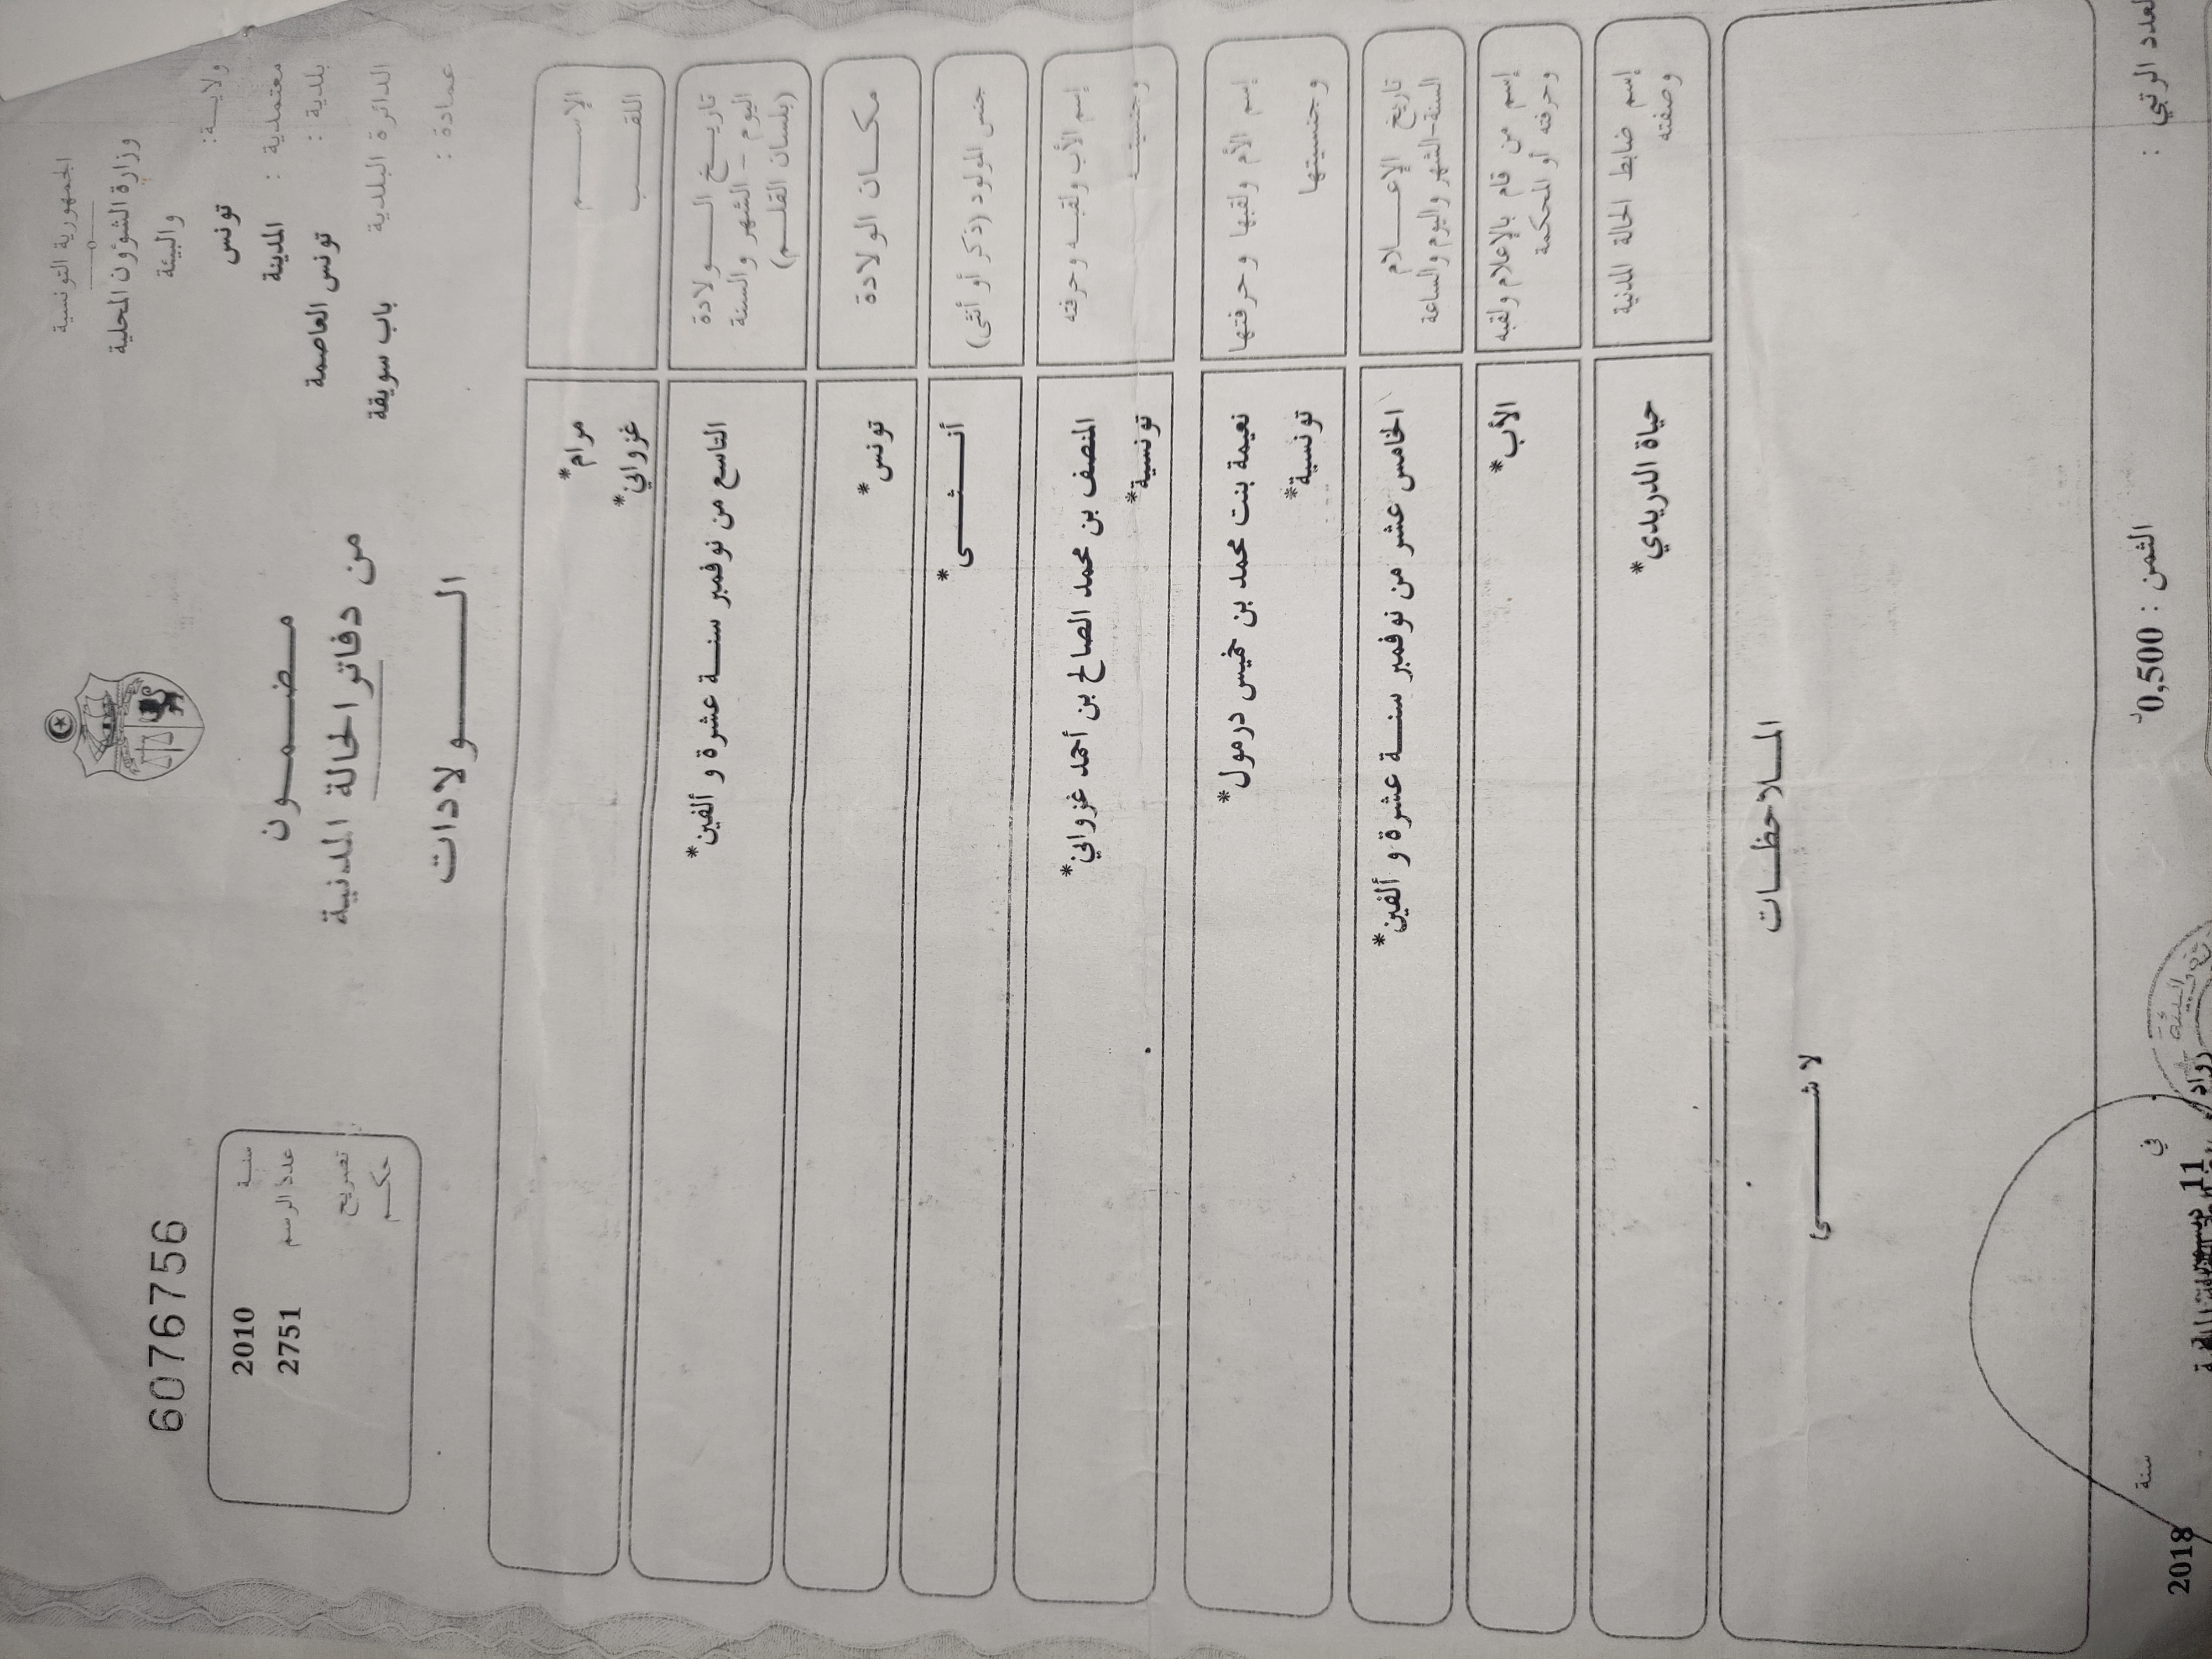 الجمهورية التونسية
وزارة الشؤون المحلية
والبيئة
ولاية: تونس
معتمدية : المدينة
بلدية : تونس العاصمة
الدائرة البلدية باب سويقة
عمادة :
6076756
سنة 2010
عدد الرسم 2751
تصريح
حكم
مضمون
من دفاتر الحالة المدنية
الولادات
الإسم مرام*
اللقب غزواني*
تاريخ الولادة
اليوم - الشهر والسنة
(بلسان القلم)
التاسع من نوفمبر سنة عشرة و ألفين*
مكان الولادة تونس*
جنس المولود (ذكر أو أنثى) أنثى*
إسم الأب ولقبه وحرفته المنصف بن محمد الصالح بن أحمد غزواني*
وجنسيته تونسية*
إسم الأم ولقبها وحرفتها نعيمة بنت محمد بن خميس درمول*
وجنسيتها تونسية*
تاريخ الإعلام
السنة-الشهر واليوم والساعة
الخامس عشر من نوفمبر سنة عشرة و ألفين*
إسم من قام بالإعلام ولقبه
وحرفته أو المحكمة
الأب*
إسم ضابط الحالة المدنية
وصفته
حياة الدريدي*
الملاحظات
لا شيء
العدد الرتبي :
الثمن : 0,500د
في
سنة
11
2018